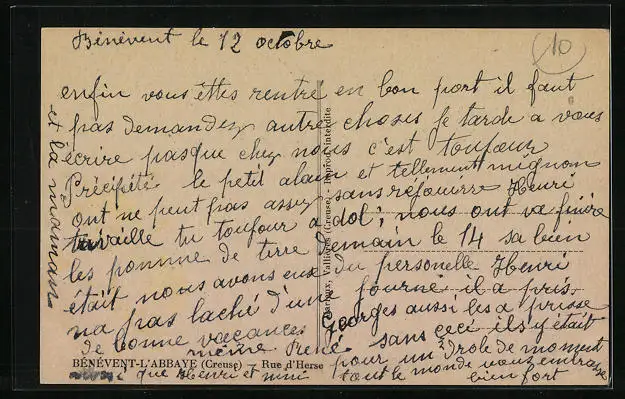 Bénévent le 12 octobre
10
enfin vous êttes rentré en bon port il faut
pas demandez autre choses je tarde a vous
écrire pasque chez nous c'est toufour
Précipité le petit alain et tellement mignon
ont ne peut pas assez sans réfouirre Henri
travaille tu toufour a dol; nous ont va finire
les pomme de terre demain le 14 sa bien
était nous avons eux du personelle Henri
na pas laché d'une fourné il a pris
de bonne vacances Georges aussi les a prisse
même René sans ceci ils y était
BÉNÉVENT-L'ABBAYE (Creuse) Rue d'Herse
pour un drole de moment
que Henri et mimi tout le monde vous embrasse
bien fort
et la maman
Vallières (Creuse) - Reprod. interdite